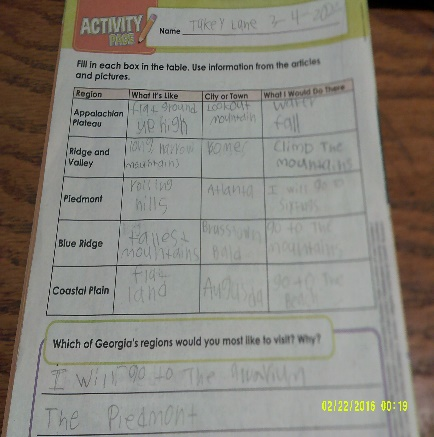 ACTIVITY
PAGE
Name Tukey Lane 3-4-
Fill in each box in the table. Use information from the articles
and pictures.
Region What It's Like City or Town What I Would Do There
Appalachian Plateau flat ground up high Lookout mountain water fall
Ridge and Valley long mountains Rome Climb The
Piedmont hills Atlanta I will go to
Blue Ridge tallest mountains Bald go to The mountains
Coastal Plain flat land go to The
Which of Georgia's regions would you most like to visit? Why?
I will go to The
The Piedmont
02/22/2016 00:19